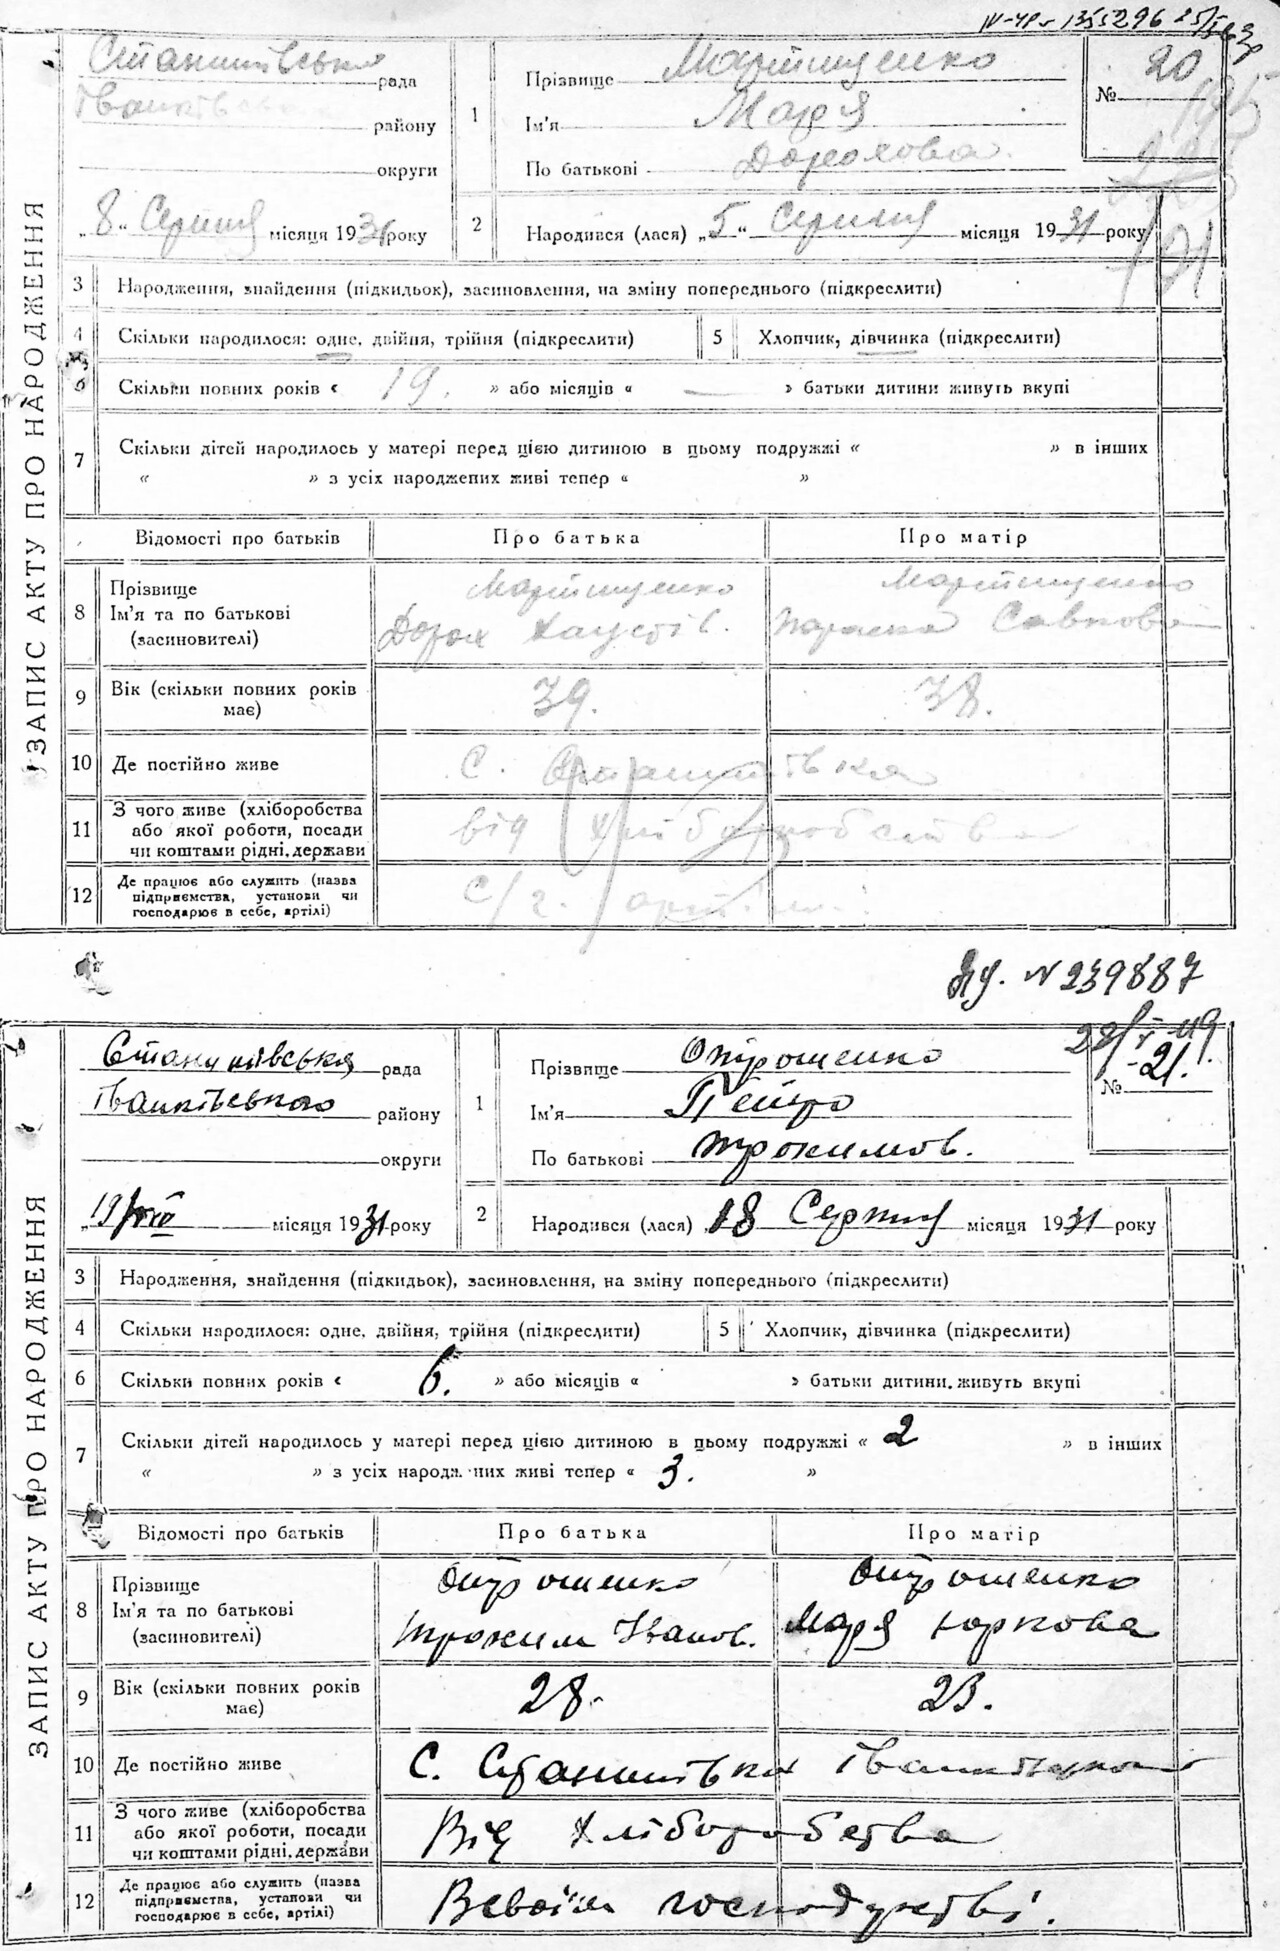 ЗАПИС АКТУ ПРО НАРОДЖЕННЯ
Станишівська рада
Іванківськ району
округи
"8" Серпня місяця 1931 року
1 Прізвище Мартищенко
Ім'я Марія
По батькові Дорохова
№ 20
2 Народився (лася) „5“ Серпня місяця 1931 року
3 Народження, знайдення (підкидьок), засиновлення, на зміну попереднього (підкреслити)
4 Скільки народилося: одне, двійня, трійня (підкреслити) 5 Хлопчик, дівчинка (підкреслити)
6 Скільки повних років « 19. » або місяців « — » батьки дитини живуть вкупі
7 Скільки дітей народилось у матері перед цією дитиною в цьому подружжі « » в інших
« » з усіх народжених живі тепер « »
Відомості про батьків Про батька Про матір
8 Прізвище Мартищенко Мартищенко
Ім'я та по батькові Дорох Хаустів. Параска Савкова
(засиновителі)
9 Вік (скільки повних років має) 39. 38.
10 Де постійно живе С. Станишівка
11 З чого живе (хліборобства
або якої роботи, посади від хліборобства
чи коштами рідні, держави
12 Де працює або служить (назва
підприємства, установи чи С/г. артіли.
господарює в себе, артілі)
№ 239887
ЗАПИС АКТУ ПРО НАРОДЖЕННЯ
Станишівська рада
Іванківського району
округи
„19/VIII місяця 1931 року
1 Прізвище Отрошенко
Ім'я Петро
По батькові Трохимов.
№ 21.
2 Народився (лася) 18 Серпня місяця 1931 року
3 Народження, знайдення (підкидьок), засиновлення, на зміну попереднього (підкреслити)
4 Скільки народилося: одне, двійня, трійня (підкреслити) 5 Хлопчик, дівчинка (підкреслити)
6 Скільки повних років « 6. » або місяців « » батьки дитини живуть вкупі
7 Скільки дітей народилось у матері перед цією дитиною в цьому подружжі « 2 » в інших
« » з усіх народжених живі тепер « 3. »
Відомості про батьків Про батька Про матір
8 Прізвище Отрошенко Отрошенко
Ім'я та по батькові Трохим Іванов. Марія Юркова
(засиновителі)
9 Вік (скільки повних років має) 28. 23.
10 Де постійно живе С. Станишівка
11 З чого живе (хліборобства
або якої роботи, посади Від Хліборобства
чи коштами рідні, держави
12 Де працює або служить (назва
підприємства, установи чи Всвоїм господарстві.
господарює в себе, артілі)